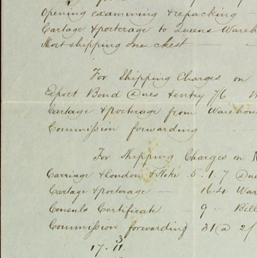 Opening examining & repacking
Cartage & porterage to Queens Wareh
Most shipping one chest
For Shipping Charges on
Export Bond Dues & entry 7/6
Cartage & porterage from Wareho
Commission forwarding
For Shipping Charges on
Carriage & London & Stoke 5.1.7 Dues
Cartage & porterage 16.4 War
Consuls Certificate 9 - Bill
Commission forwarding 31/2 2/
17.11